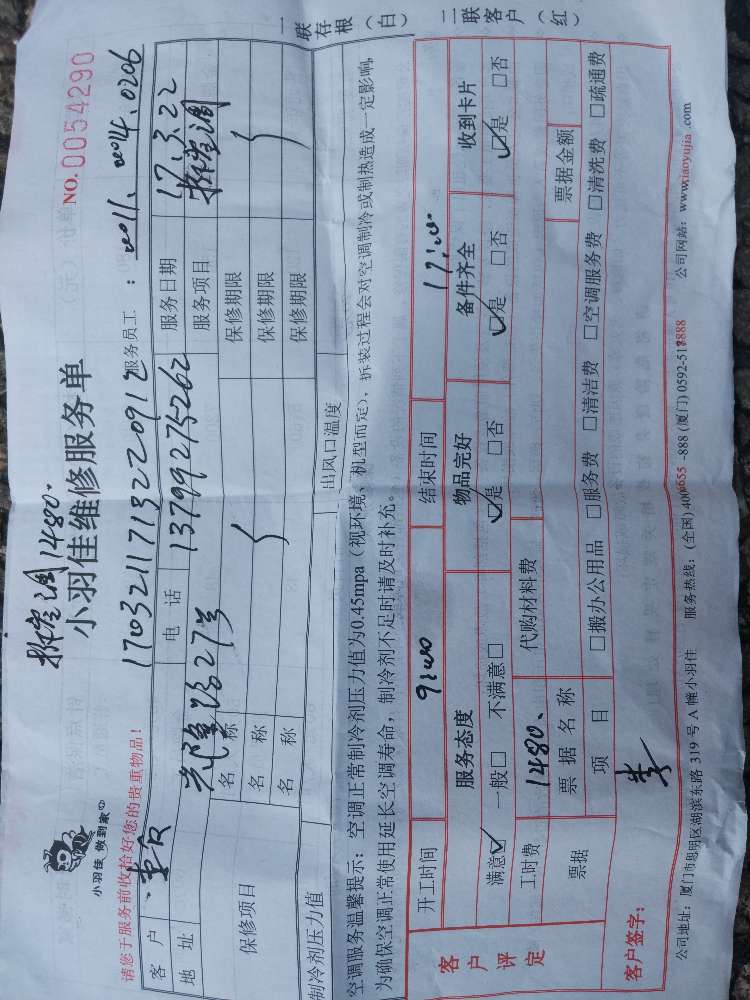 拆空调 1480.
小羽佳维修服务单
NO. 0054290
小羽佳 做到家
请您于服务前收拾好您的贵重物品!
170321171322091 服务员工:
客户
电话 13799275262
服务日期 17.3.22
地址 327号
服务项目 拆空调
保修项目
名称 保修期限
名称 保修期限
名称 保修期限
制冷剂压力值 出风口温度
空调服务温馨提示:空调正常制冷剂压力值为0.45mpa(视环境、机型而定),拆装过程会对空调制冷或制热造成一定影响,
为确保空调正常使用延长空调寿命,制冷剂不足时请及时补充。
一联存根(白) 二联客户(红)
客户评定
开工时间 结束时间
服务态度 物品完好 备件齐全 收到卡片
满意☑ 一般□ 不满意□ ☑是 □否 ☑是 □否 ☑是 □否
工时费 1480. 代购材料费
票据 票据名称 票据金额
项目 □搬办公用品 □服务费 □清洁费 □空调服务费 □清洗费 □疏通费
客户签字: 李
公司地址:厦门市思明区湖滨东路319号A幢小羽佳 服务热线:(全国)4006655-888 (厦门)0592-5188888 公司网站:www.iaoyujia.com